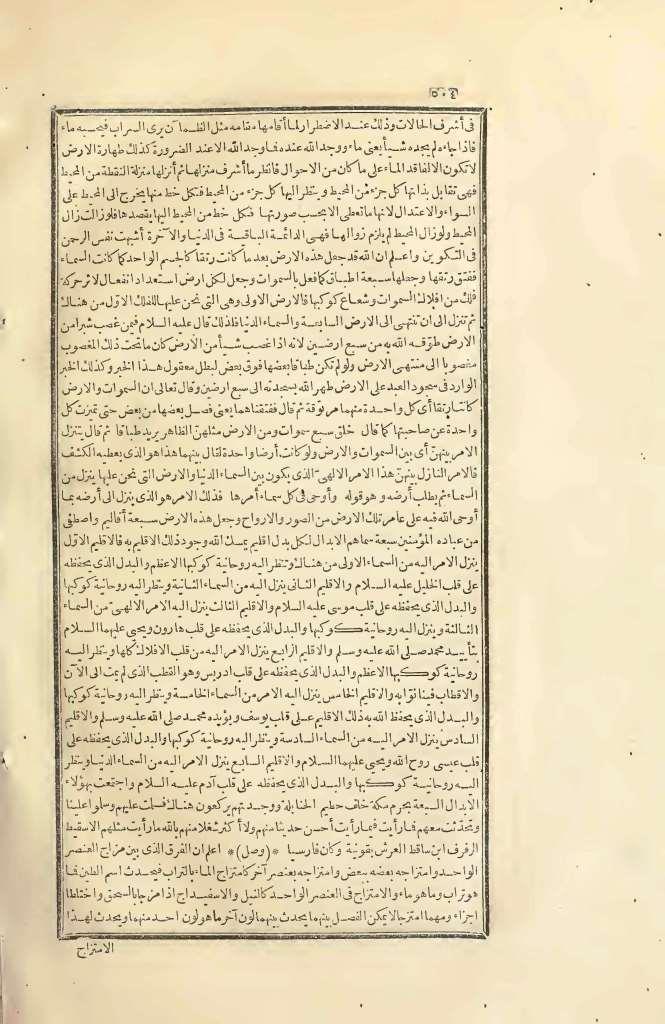 ٥٠٤
فى أشرف الحالات وذلك عند الاضطرار لما أقامها مقامه مثل الظمآن يرى السراب فيحسبه ماء
فاذا جاءه لم يجده شيأ يعنى ماء ووجد الله عنده فما وجد الله الا عند الضرورة كذلك طهارة الارض
لا تكون الا لفاقد الماء على ما كان من الاحوال فانظر ما أشرف منزلها ثم أنزلها منزلة النقطة من المحيط
فهى تقابل بذاتها كل جزء من المحيط وينظر اليها كل جزء من المحيط فكل خط منها يخرج الى المحيط على
السواء والاعتدال لانها ما تعطى الا بحسب صورتها فكل خط من المحيط اليها يقصدها فلو زالت زال
المحيط ولو زال المحيط لم يلزم زوالها فهى الدائمة الباقية فى الدنيا والآخرة أشبهت نفس الرحمن
فى التكوين واعلم ان الله قد جعل هذه الارض بعد ما كانت رتقا كالجسم الواحد كما كانت السماء
ففتق رتقها وجعلها سبعة اطباق كما فعل بالسموات وجعل لكل ارض استعداد انفعال لاثر حركة
فلك من افلاك السموات وشعاع كوكبها فالارض الاولى وهى التى نحن عليها للفلك الاول من هنالك
ثم تنزل الى ان تنتهى الى الارض السابعة والسماء الدنيا فلذلك قال عليه السلام فيمن غصب شبرا من
الارض طوّقه الله به من سبع ارضين لانه اذا غصب شيأ من الارض كان ما تحت ذلك المغصوب
مغصوبا الى منتهى الارض ولو لم تكن طباقا بعضها فوق بعض لبطل معقول هذا الخبر وكذلك الخبر
الوارد فى سجود العبد على الارض طهر الله بسجدته الى سبع ارضين وقال تعالى ان السموات والارض
كانتا رتقا أى كل واحدة منهما مرتوقة ثم قال ففتقناهما يعنى فصل بعضها من بعض حتى تميزت كل
واحدة عن صاحبتها كما قال خلق سبع سموات ومن الارض مثلهنّ الظاهر يريد طباقا ثم قال يتنزل
الامر بينهنّ أى بين السموات والارض ولو كانت أرضا واحدة لقال بينهما هذا هو الذى يعطيه الكشف
فالامر النازل بينهنّ هذا الامر الالهىّ الذى يكون بين السماء الدنيا والارض التى نحن عليها ينزل من
السماء ثم يطلب أرضه وهو قوله وأوحى فى كل سماء أمرها فذلك الامر هو الذى ينزل الى أرضه بما
أوحى الله فيه على عامر تلك الارض من الصور والارواح وجعل هذه الارض سبعة أقاليم واصطفى
من عباده المؤمنين سبعة سماهم الابدال لكل بدل اقليم يمسك الله وجود ذلك الاقليم به فالاقليم الاول
ينزل الامر اليه من السماء الاولى من هنالك وتنظر اليه روحانية كوكبها الاعظم والبدل الذى يحفظه
على قلب الخليل عليه السلام والاقليم الثانى ينزل اليه من السماء الثانية وينظر اليه روحانية كوكبها
والبدل الذى يحفظه على قلب موسى عليه السلام والاقليم الثالث ينزل اليه الامر الالهىّ من السماء
الثالثة وينزل اليه روحانية كوكبها والبدل الذى يحفظه على قلب هارون ويحيى عليهما السلام
بتأييد محمد صلى الله عليه وسلم والاقليم الرابع ينزل الامر اليه من قلب الافلاك كلها وينظر اليه
روحانية كوكبها الاعظم والبدل الذى يحفظه على قلب ادريس وهو القطب الذى لم يمت الى الآن
والاقطاب فينا نوابه والاقليم الخامس ينزل اليه الامر من السماء الخامسة وينظر اليه روحانية كوكبها
والبدل الذى يحفظ الله به ذلك الاقليم على قلب يوسف ويؤيده محمد صلى الله عليه وسلم والاقليم
السادس ينزل الامر اليه من السماء السادسة وينظر اليه روحانية كوكبها والبدل الذى يحفظه على
قلب عيسى روح الله ويحيى عليهما السلام والاقليم السابع ينزل الامر اليه من السماء الدنيا وينظر
اليه روحانية كوكبها والبدل الذى يحفظه على قلب آدم عليه السلام واجتمعت بهؤلاء
الابدال السبعة بحرم مكة خلف حطيم الحنابلة ووجدتهم يركعون هنالك فسلمت عليهم وسلموا علينا
وتحدّثت معهم فما رأيت فيما رأيت أحسن حديثا منهم ولا أكثر شغلا منهم بالله ما رأيت مثلهم الا سقيط
الرفرف ابن ساقط العرش بقونية وكان فارسيا *(وصل)* اعلم ان الفرق الذى بين مزاج العنصر
الواحد وامتزاجه بعضه ببعض وامتزاجه بعنصر آخر كامتزاج الماء بالتراب فيحدث اسم الطين فما
هو تراب وما هو ماء والامتزاج فى العنصر الواحد كالنيل والاسفيداج اذا مزجا بالسحق واختلطا
اجزاء ومهما امتزجا لا يمكن الفصل بينهما يحدث بينهما لون آخر ما هو لون احد منهما ويحدث لهذا
الامتزاج